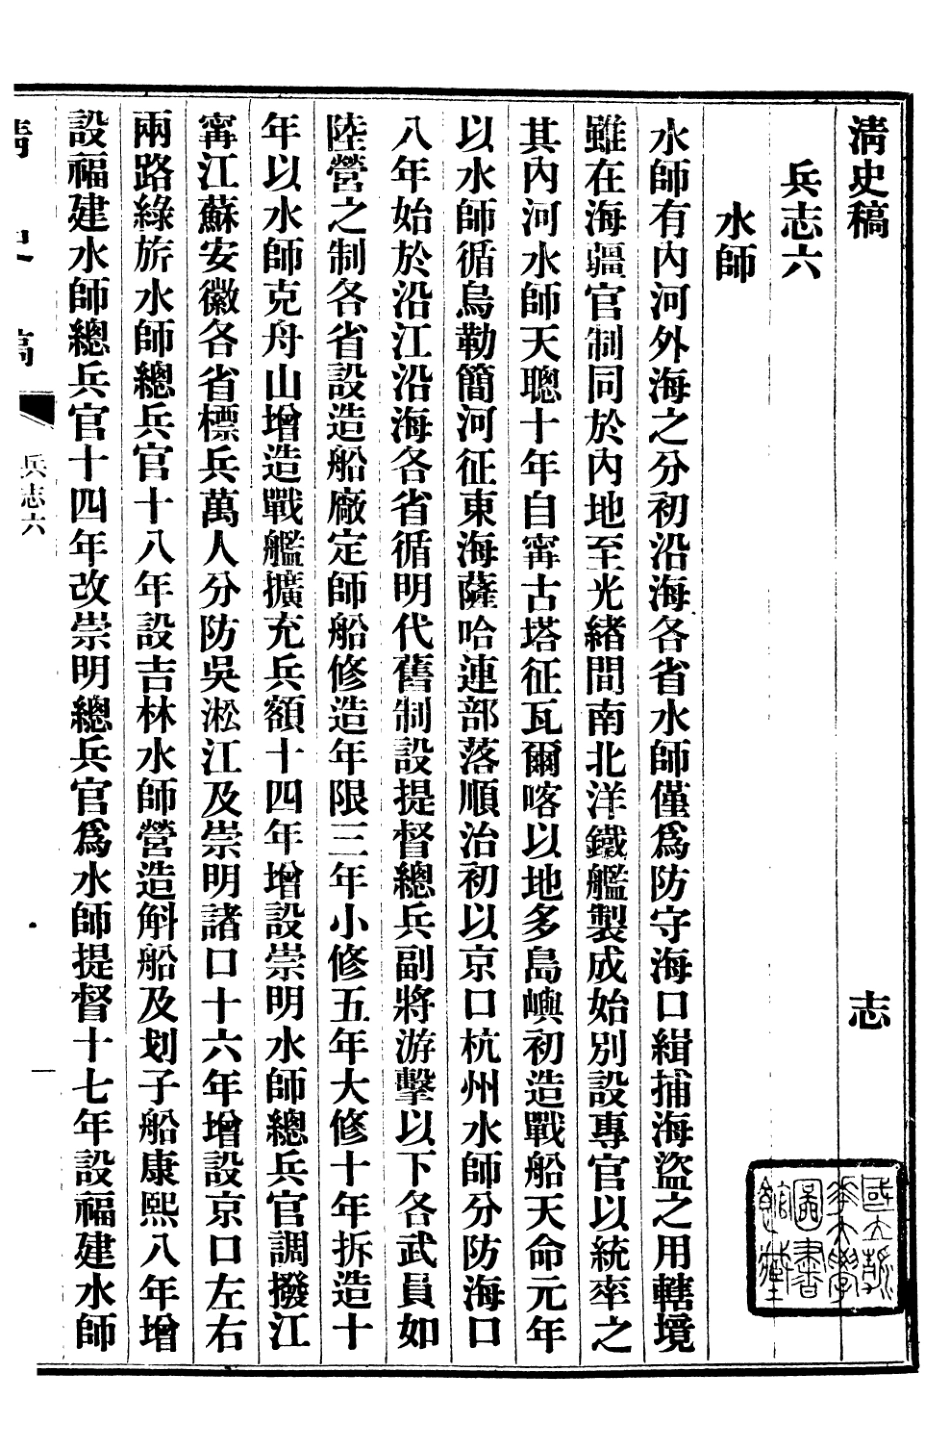 清史稿 志
兵志六
水師
水師有內河外海之分初沿海各省水師僅爲防守海口緝捕海盜之用轄境
雖在海疆官制同於內地至光緒間南北洋鐵艦製成始別設專官以統率之
其內河水師天聰十年自甯古塔征瓦爾喀以地多島嶼初造戰船天命元年
以水師循烏勒簡河征東海薩哈連部落順治初以京口杭州水師分防海口
八年始於沿江沿海各省循明代舊制設提督總兵副將游擊以下各武員如
陸營之制各省設造船廠定師船修造年限三年小修五年大修十年拆造十
年以水師克舟山增造戰艦擴充兵額十四年增設崇明水師總兵官調撥江
甯江蘇安徽各省標兵萬人分防吳淞江及崇明諸口十六年增設京口左右
兩路綠旂水師總兵官十八年設吉林水師營造斛船及划子船康熙八年增
設福建水師總兵官十四年改崇明總兵官爲水師提督十七年設福建水師
清史稿 兵志六 一
國立清華大學圖書館藏